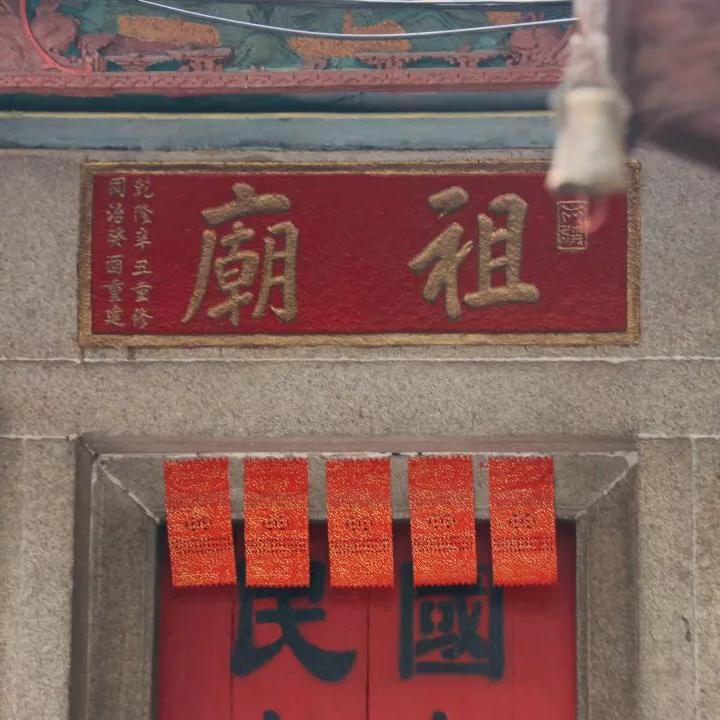 祖廟
乾隆辛丑重修
同治癸酉重建
國
民